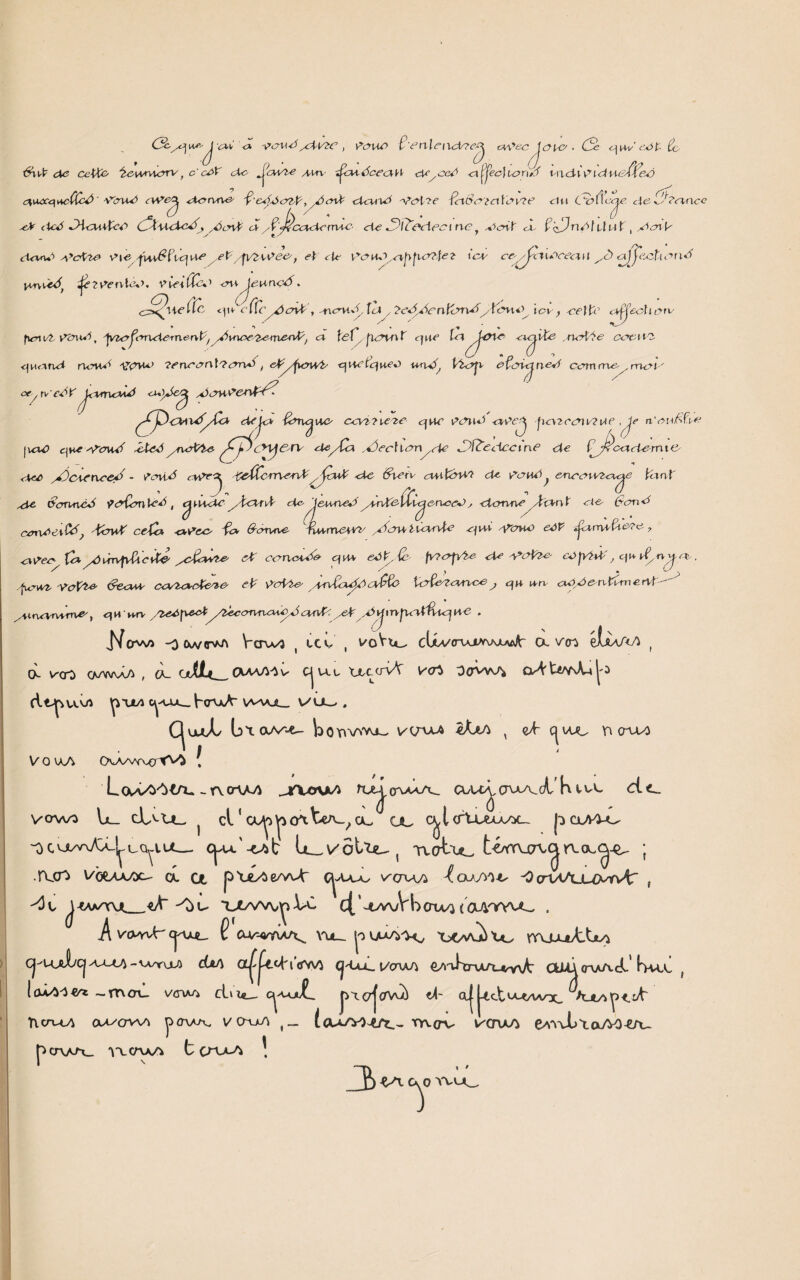 Ce que j'ai à vous dire, vous l'entendrez avec joie. Ce qui est le
but de cette réunion, c'est de faire un faisceau de ces affections individuelles
auxquelles vous avez donné l'essor, soit dans votre laboratoire du Collège de France
et des Hautes Etudes, soit à l'Académie de Médecine, soit à l'Institut, soit
dans votre vie publique et privée, et de vous apporter ici ce faisceau d'affections
unies, ferventes, vieilles ou jeunes.
Quelle qu'elle soit, nous la ressentons tous ici, cette affection
pour vous, profondément, sincèrement, à tel point que la joie agite notre coeur
quand nous vous rencontrons, et pour quelques uns, trop éloignés comme moi
ce n'est jamais assez souvent.
Dans la déjà longue carrière que vous avez parcourue, je n'oublie
pas que vous êtes notre Doyen de la Section de Médecine de l'Académie
des Sciences - vous avez tellement fait de bien autour de vous, encouragé tant
de bonnes volontés, guidé tant de jeunes intelligences, donné tant de bons
conseils, tout cela avec la bonne humeur souriante qui vous est familière,
avec la simplicité claire et concise qui est le propre de votre esprit, qu'il n'y a,
pour votre beau caractère et votre inlassable tolérance, qu'un assentiment
unanime, qu'un respect reconnaissant et sympathique.
Nous savons tous, ici, votre dévouement à vos élèves,
à vos amis, à qui vos
depuis plus que
Quel brave homme vous êtes, et que nous
vous aimons!
Laissez-nous aujourd'hui de
vous le dire, d'apporter, à ce glorieux passé
scientifique qui est le vôtre, notre témoignage;
nos voeux à ce présent que vous faites souriant,
si jeune et si rempli d'enthousiasme.
A vous que l'avenir ne puisse réserver
quelques-unes des affections qui vous entourent aujourd'hui,
laissez-moi vous dire quel profond et affectueux respect
nous avons pour vous, - laissez-moi vous embrasser
pour nous tous!
Bergonié